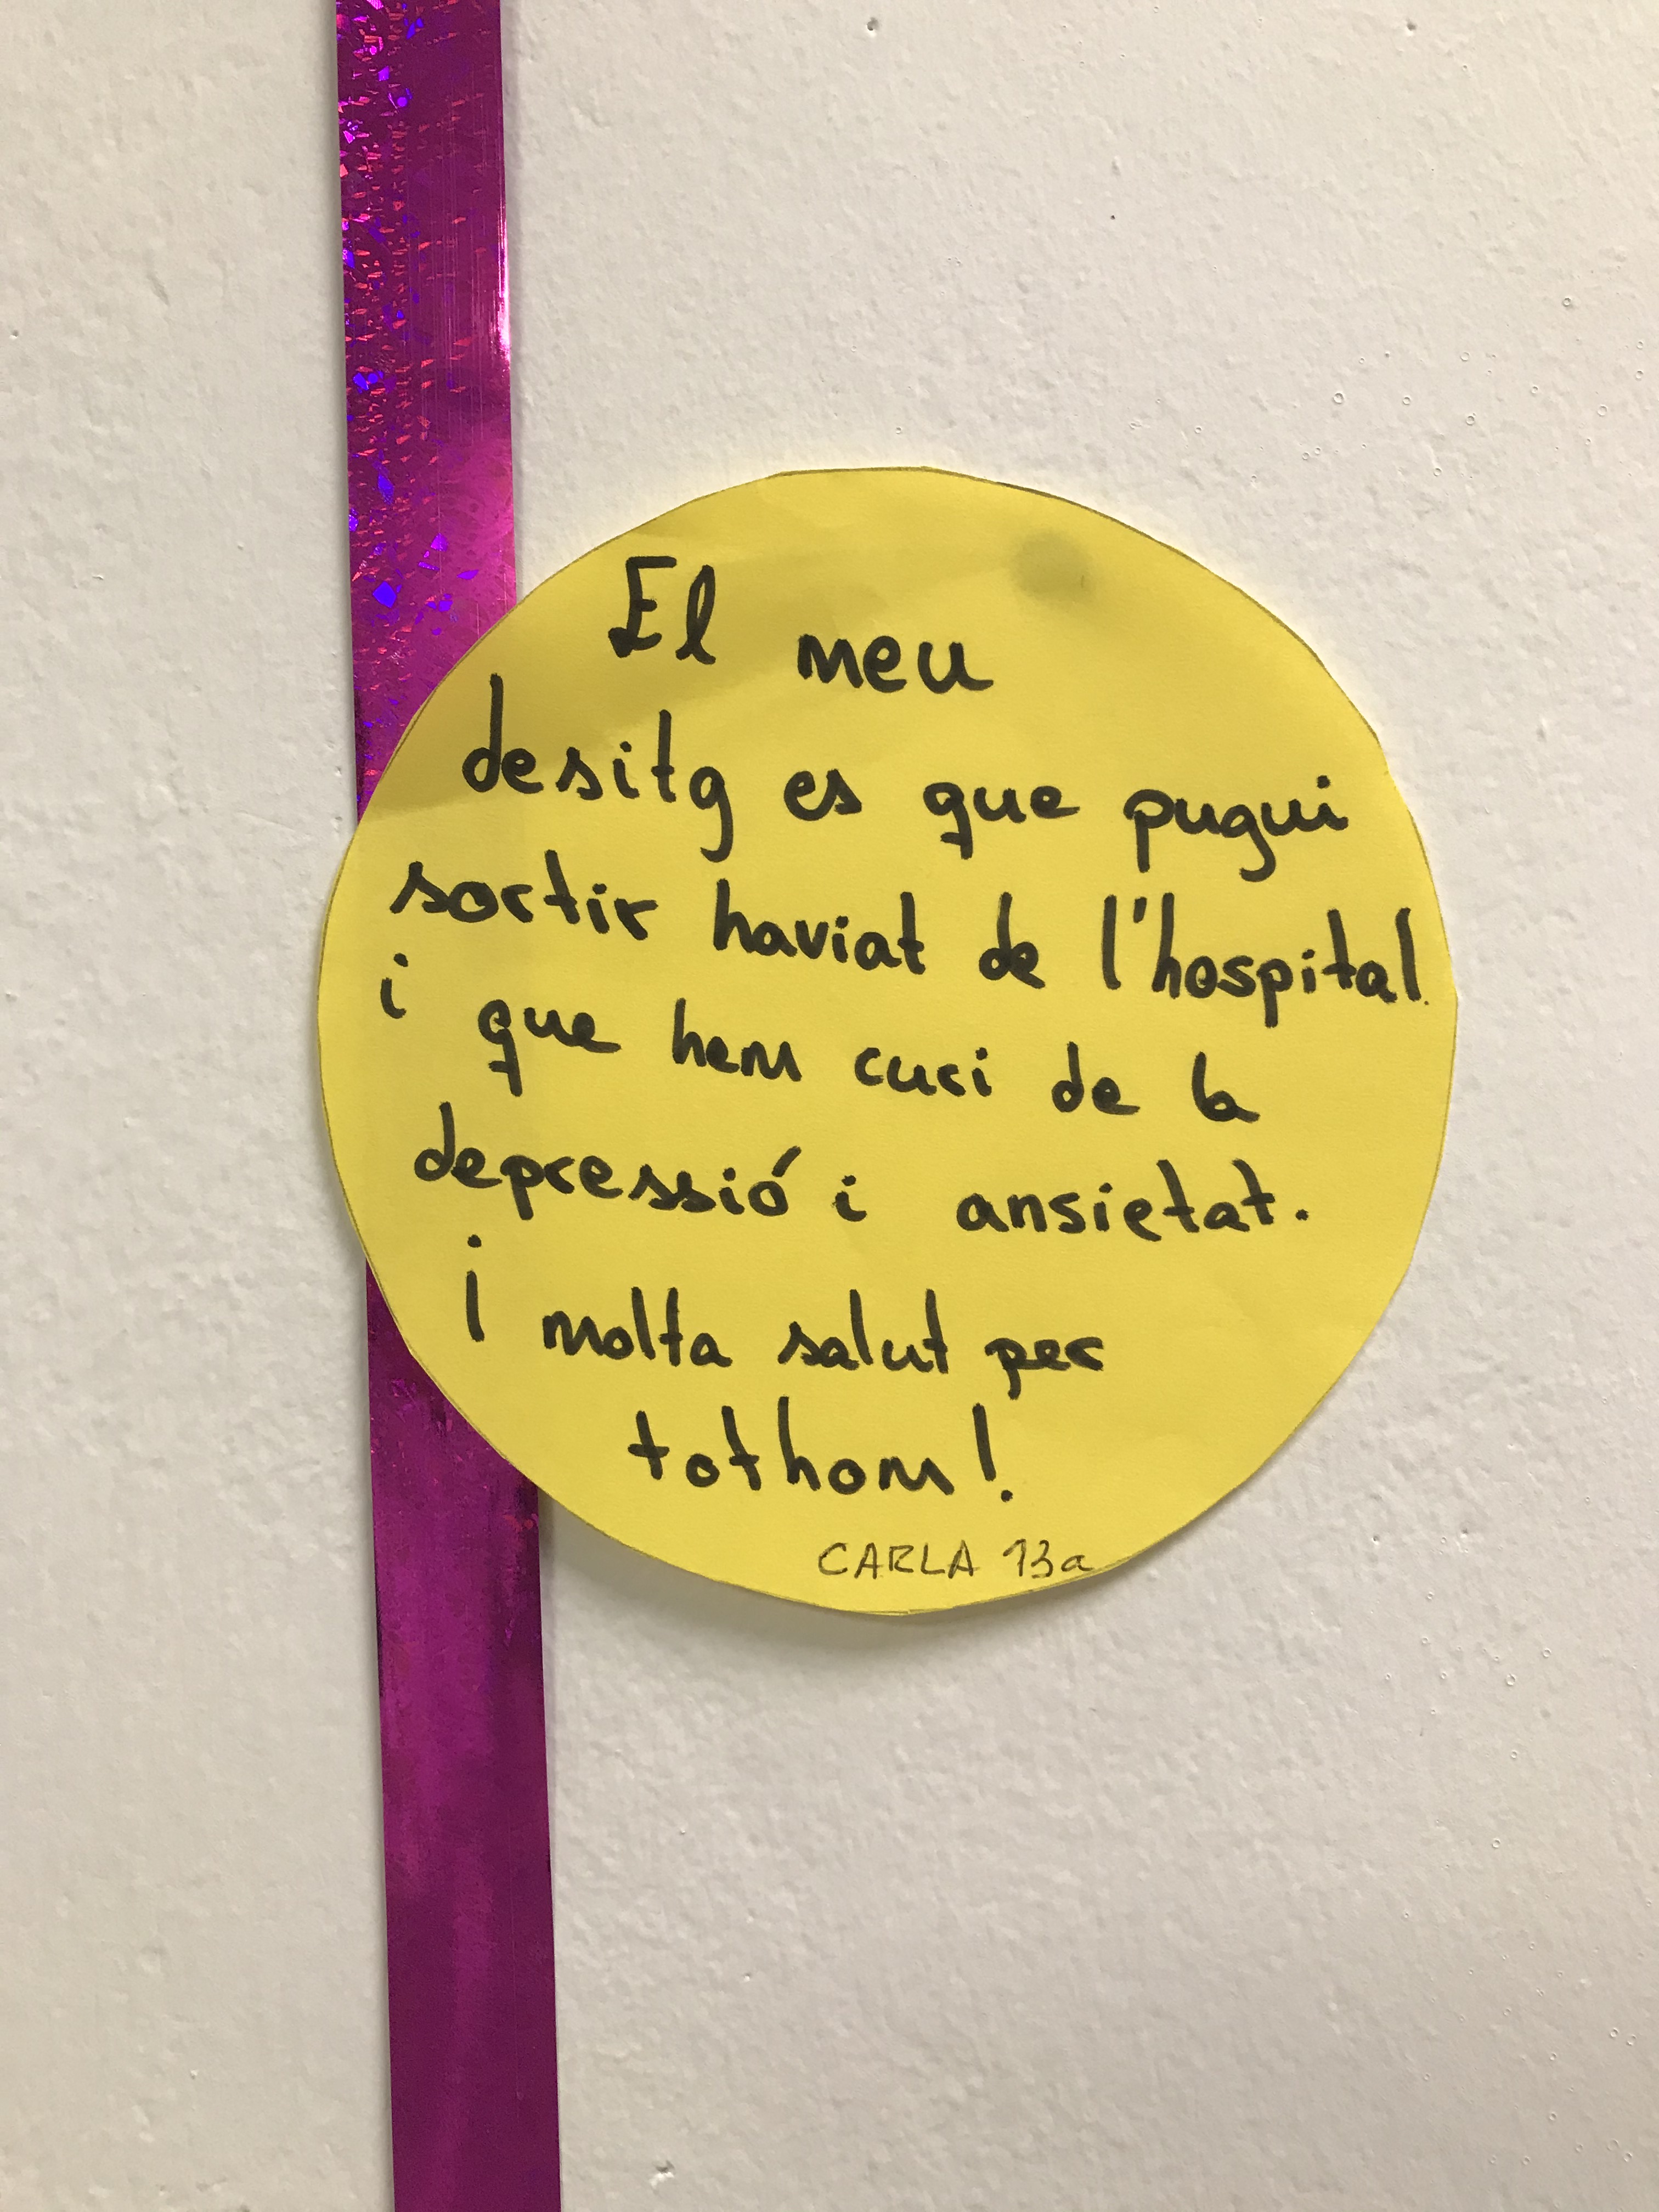 El meu
desitg es que pugui
sortir haviat de l'hospital
i que hem curi de la
depressió i ansietat.
i molta salut per
tothom!
CARLA 13a